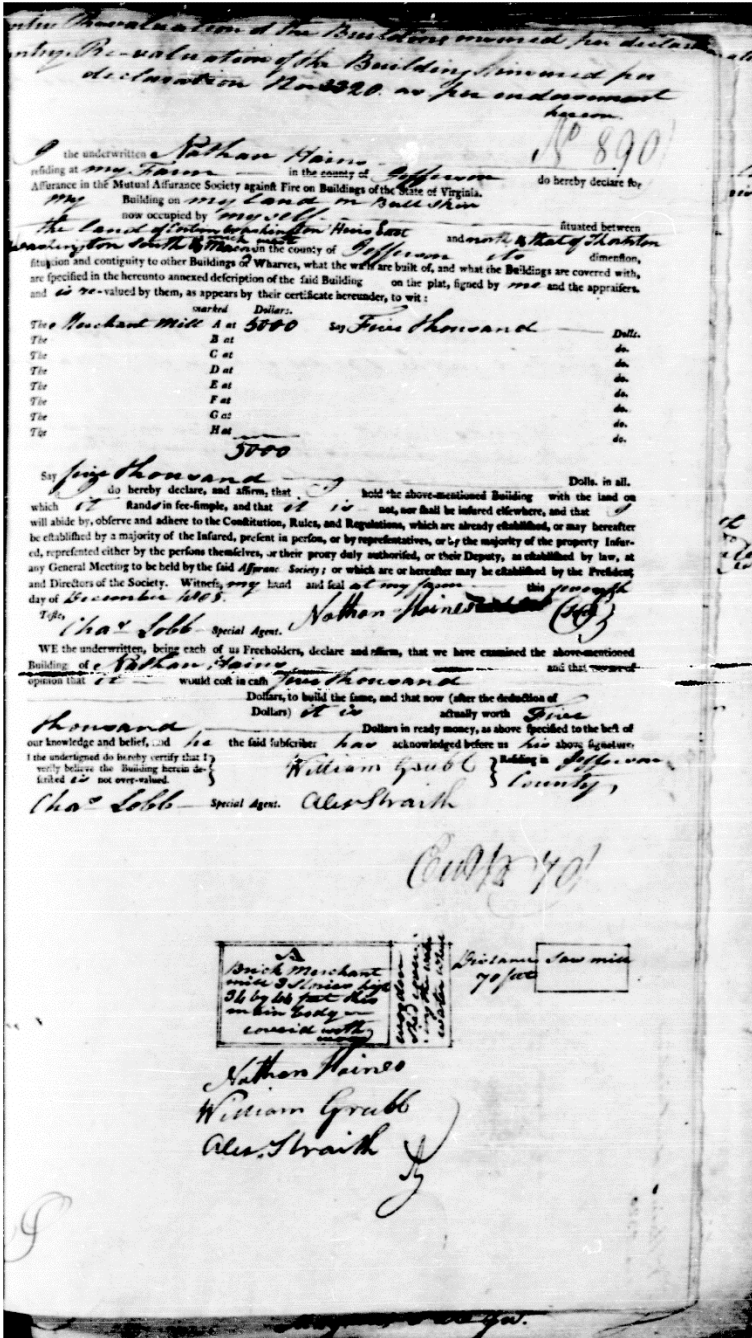 Re-valuation of the Building insured per
declaration No. 2320. as per endorsement
hereon.
No 890
I the underwritten Nathan Hains
residing at my Farm in the county of Jefferson do hereby declare for
Assurance in the Mutual Assurance Society against Fire on Buildings of the State of Virginia.
My Building on my land on Bull Skin
now occupied by myself situated between
the land of Washington Heirs East and north & that of Thornton
Washington South & in the county of Jefferson its dimension,
situation and contiguity to other Buildings or Wharves, what the walls are built of, and what the Buildings are covered with,
are specified in the hereunto annexed description of the said Building on the plat, signed by me and the appraisers.
and is re-valued by them, as appears by their certificate hereunder, to wit:
marked Dollars.
The Merchant Mill A at 5000 Say Five thousand Dolls.
The B at do.
The C at do.
The D at do.
The E at do.
The F at do.
The G at do.
The H at do.
5000
Say five thousand Dolls. in all.
I do hereby declare, and affirm, that I hold the above-mentioned Building with the land on
which it stands in fee-simple, and that it is not, nor shall be insured elsewhere, and that I
will abide by, observe and adhere to the Constitution, Rules, and Regulations, which are already established, or may hereafter
be established by a majority of the Insured, present in person, or by representatives, or by the majority of the property Insur-
ed, represented either by the persons themselves, or their proxy duly authorised, or their Deputy, as established by law, at
any General Meeting to be held by the said Assurance Society; or which are or hereafter may be established by the President
and Directors of the Society. Witness, my hand and seal at my farm this
day of December 1805.
Teste,
Chas Lobb Special Agent. Nathan Haines (Seal)
WE the underwritten, being each of us Freeholders, declare and affirm, that we have examined the above-mentioned
Building of Nathan Hains and that we are of
opinion that it would cost in cash five thousand
Dollars, to build the same, and that now (after the deduction of
Dollars) it is actually worth Five
thousand Dollars in ready money, as above specified to the best of
our knowledge and belief, and he the said subscriber has acknowledged before us his above signature.
I the undersigned do hereby certify that I
verily believe the Building herein de-
scribed is not over-valued.
William Grubb Residing in Jefferson
County,
Chas Lobb Special Agent. Alex Straith
70
A
Brick Merchant
mill 3 Stories high
34 by 44 feet this
main body
covered with
wood
wooden
shed cover-
ing the
water wheel
Distance
70 feet
Saw mill
Nathan Haines
William Grubb
Alex. Straith